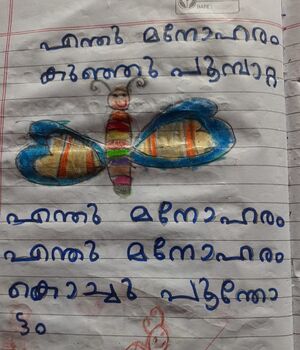 എന്തു മനോഹരം
കുഞ്ഞു പൂമ്പാറ്റ
എന്തു മനോഹരം
എന്തു മനോഹരം
കൊച്ചു പൂന്തോ
ട്ടം